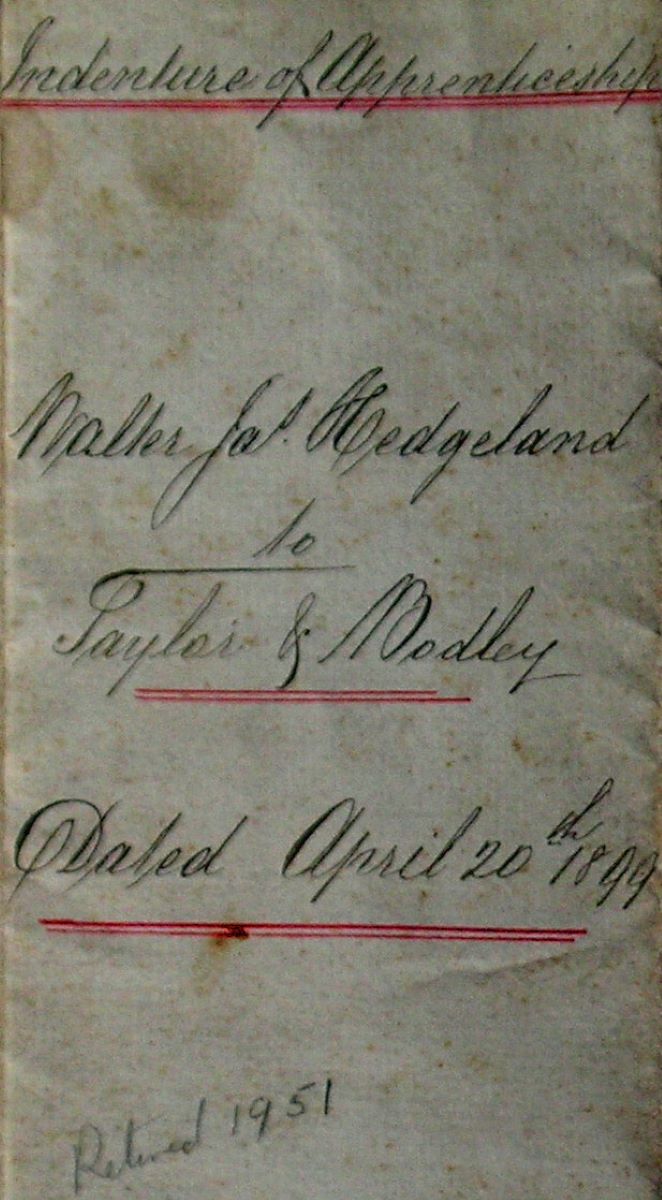 Indenture of Apprenticeship
Walter Jas. Hedgeland
to
Taylor & Bodley
Dated April 20th 1899
Retired 1951